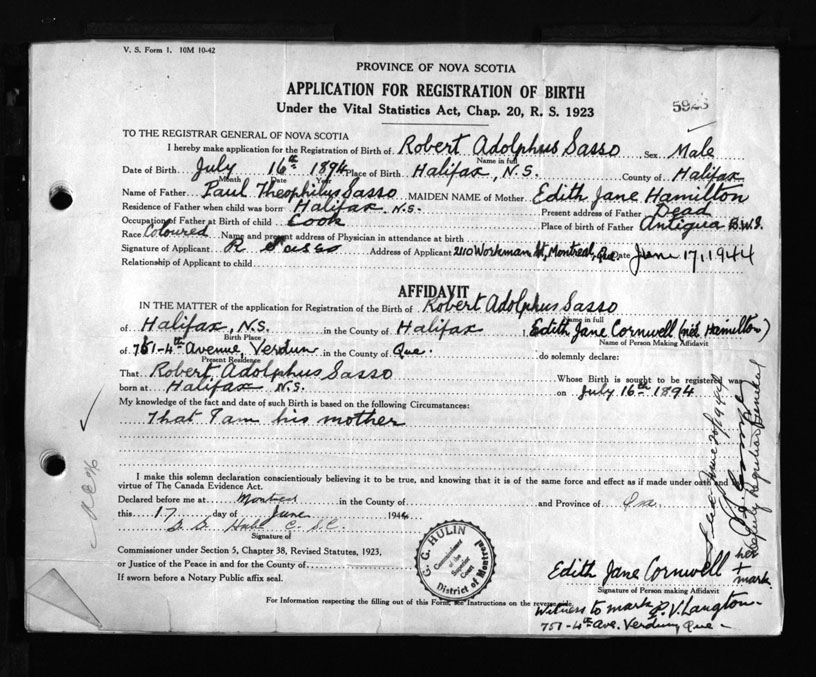 V. S. Form 1. 10M 10-42
PROVINCE OF NOVA SCOTIA
APPLICATION FOR REGISTRATION OF BIRTH
Under the Vital Statistics Act, Chap. 20, R. S. 1923
5923
TO THE REGISTRAR GENERAL OF NOVA SCOTIA
I hereby make application for the Registration of Birth of Robert Adolphus Sasso Sex Male
Name in full
Date of Birth July 16th 1894 Place of Birth Halifax, N.S. County of Halifax
Month Date Year
Name of Father Paul Theophilus Sasso MAIDEN NAME of Mother Edith Jane Hamilton
Residence of Father when child was born Halifax, N.S. Present address of Father Dead
Occupation of Father at Birth of child Cook Place of birth of Father Antigua B.W.I.
Race Coloured Name and present address of Physician in attendance at birth
Signature of Applicant R Sasso Address of Applicant 2110 Workman St, Montreal, Que Date June 17, 1944
Relationship of Applicant to child
AFFIDAVIT
IN THE MATTER of the application for Registration of the Birth of Robert Adolphus Sasso
Name in full
of Halifax, N.S. in the County of Halifax I, Edith Jane Cornwell (née Hamilton)
Birth Place Name of Person Making Affidavit
of 751-4th Avenue, Verdun in the County of Que. do solemnly declare:
Present Residence
That Robert Adolphus Sasso Whose Birth is sought to be registered was
born at Halifax N.S. on July 16th 1894
My knowledge of the fact and date of such Birth is based on the following Circumstances:
That I am his mother
I make this solemn declaration conscientiously believing it to be true, and knowing that it is of the same force and effect as if made under oath and by
virtue of The Canada Evidence Act.
Declared before me at Montreal in the County of and Province of Que.
this 17 day of June 1944
Signature of
Commissioner under Section 5, Chapter 38, Revised Statutes, 1923,
or Justice of the Peace in and for the County of
If sworn before a Notary Public affix seal.
G. G. HULIN
Commissioner of the Superior Court
District of Montreal
Deputy Registrar General
Edith Jane Cornwell her + mark
Signature of Person making Affidavit
For Information respecting the filling out of this Form, see Instructions on the reverse side.
Witness to mark P. V. Langton
751-4th Ave. Verdun, Que.